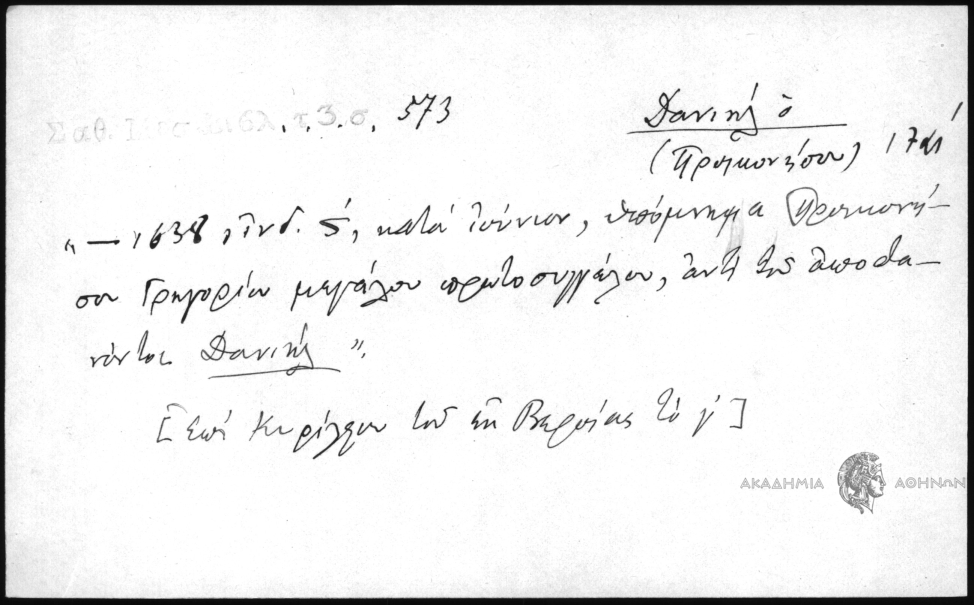 Σαθ. Μεσ. Βιβλ. τ. 3. σ. 573
Δανιήλ ὁ
(Προικονήσου) 17
"— 1638, Ἰνδ. ς΄, κατά Ἰούνιον, ὑπόμνημα Προικονή-
σου Γρηγορίου μεγάλου πρωτοσυγγέλου, ἀντί τοῦ ἀποθα-
νόντος Δανιήλ".
[ἐπί Κυρίλλου τοῦ ἐκ Βερροίας τό γ΄]
ΑΚΑΔΗΜΙΑ ΑΘΗΝΩΝ